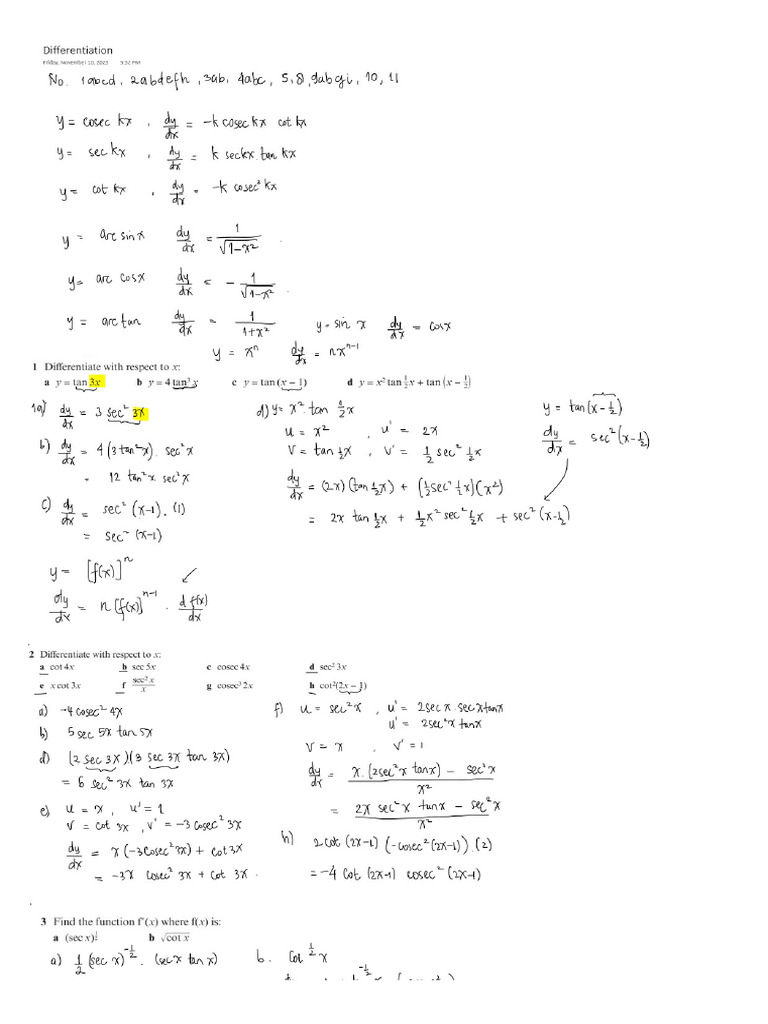 Differentiation
Friday, November 10, 2023 5:32 PM
No. 1abcd, 2abdefh, 3ab, 4abc, 5, 8, 9abgi, 10, 11
y = cosec kx , dy/dx = -k cosec kx cot kx
y = sec kx , dy/dx = k sec kx tan kx
y = cot kx , dy/dx = -k cosec² kx
y = arc sin x dy/dx = 1/√(1-x²)
y = arc cos x dy/dx = - 1/√(1-x²)
y = arc tan dy/dx = 1/(1+x²)
y = sin x dy/dx = cos x
y = xⁿ dy/dx = nxⁿ⁻¹
1 Differentiate with respect to x:
a y = tan 3x b y = 4 tan³ x c y = tan (x − 1) d y = x² tan ½x + tan (x − ½)
1a) dy/dx = 3 sec² 3x
b) dy/dx = 4(3 tan² x) . sec² x
= 12 tan² x sec² x
c) dy/dx = sec² (x-1) . (1)
= sec² (x-1)
y = [f(x)]ⁿ
dy/dx = n [f(x)]ⁿ⁻¹ . d f(x)/dx
d) y = x² . tan ½x
u = x² , u' = 2x
v = tan ½x , v' = ½ sec² ½x
dy/dx = (2x)(tan ½x) + (½ sec² ½x)(x²)
= 2x tan ½x + ½x² sec² ½x + sec² (x-½)
y = tan(x-½)
dy/dx = sec² (x-½)
2 Differentiate with respect to x:
a cot 4x b sec 5x c cosec 4x d sec² 3x
e x cot 3x f sec² x/x g cosec³ 2x h cot² (2x − 1)
a) -4 cosec² 4x
b) 5 sec 5x tan 5x
d) (2 sec 3x)(3 sec 3x tan 3x)
= 6 sec² 3x tan 3x
e) u = x , u' = 1
v = cot 3x , v' = -3 cosec² 3x
dy/dx = x(-3cosec² 3x) + cot 3x
= -3x cosec² 3x + cot 3x .
f) u = sec² x , u' = 2sec x . sec x tan x
u' = 2sec² x tan x
v = x , v' = 1
dy/dx = x.(2sec² x tan x) - sec² x / x²
= 2x sec² x tan x - sec² x / x²
h) 2 cot (2x-1) (-cosec² (2x-1)) . (2)
= -4 cot (2x-1) cosec² (2x-1)
3 Find the function f′(x) where f(x) is:
a (sec x)^½ b √cot x
a) ½ (sec x)^-½ . (sec x tan x)
b. cot^½ x